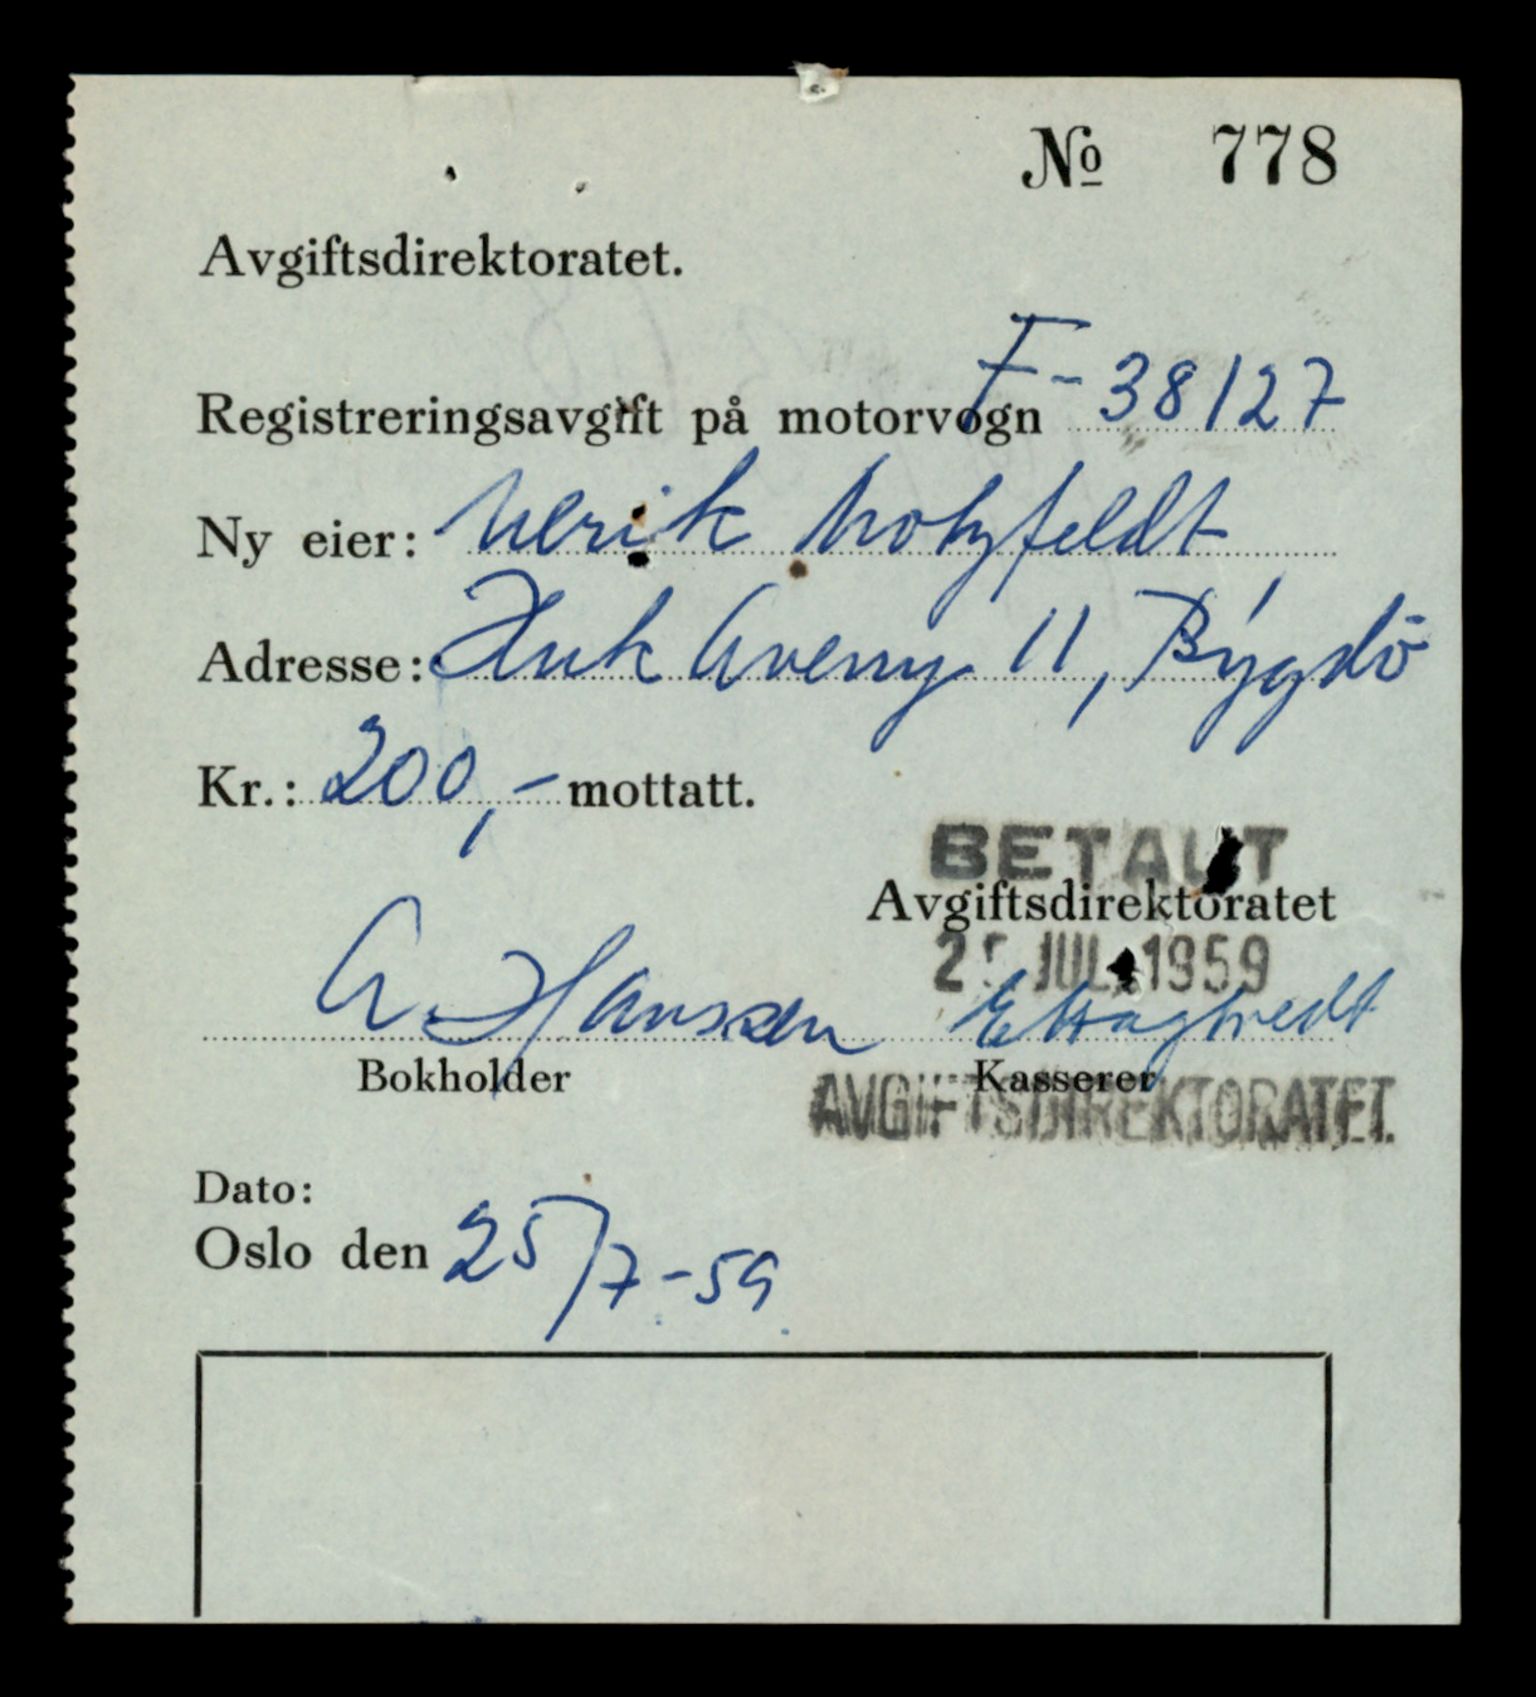 № 778
Avgiftsdirektoratet.
Registreringsavgift på motorvogn F-38127
Ny eier: Ulrik Motzfeldt
Adresse: Huk Aveny 11, Bygdö
Kr.: 200,- mottatt.
BETALT
Avgiftsdirektoratet
JUL. 1959
A. Hanssen
Bokholder Kasserer
AVGIFTSDIREKTORATET.
Dato:
Oslo den 25/7-59